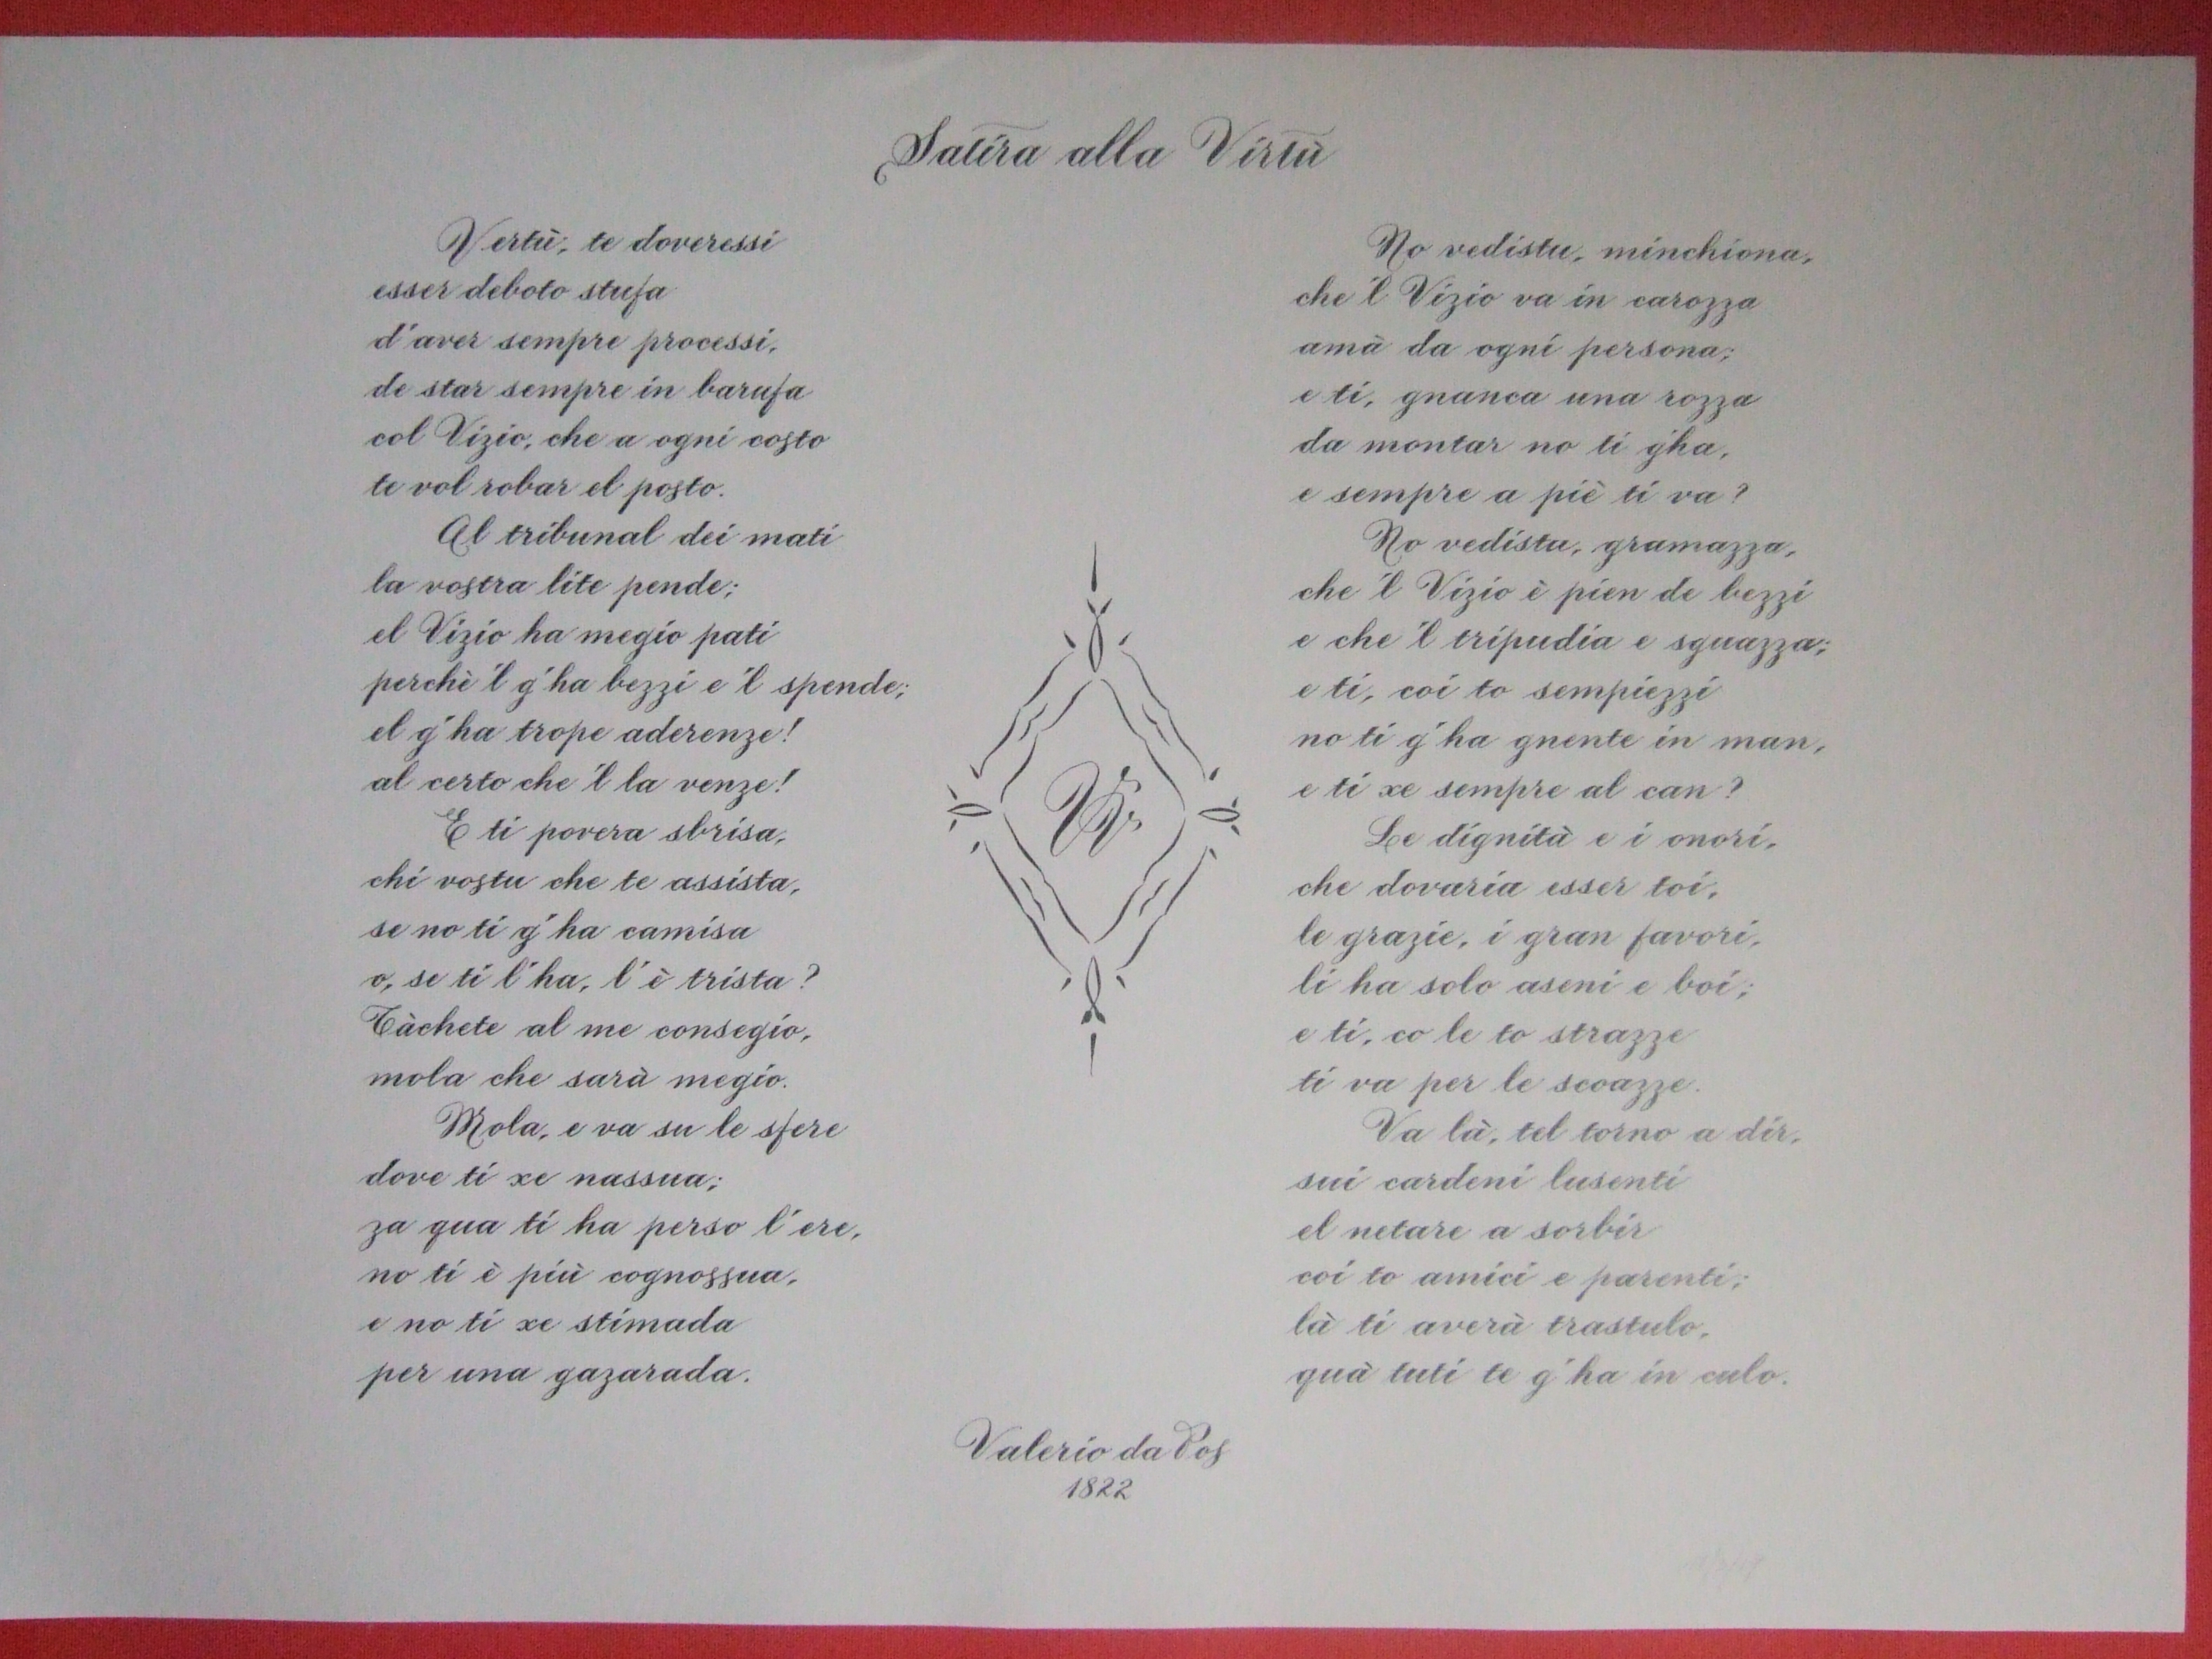 Satira alla Virtù
Vertù, te doveressi
esser deboto stufa
d'aver sempre processi,
de star sempre in barufa
col Vizio, che a ogni costo
te vol robar el posto.
Al tribunal dei mati
la vostra lite pende;
el Vizio ha megio pati
perchè 'l g'ha bezzi e 'l spende;
el g'ha trope aderenze!
al certo che 'l la venze!
E ti povera sbrisa,
chi vostu che te assista,
se no ti g'ha camisa
o, se ti l'ha, l'è trista?
Tàchete al me consegio,
mola che sarà megio.
Mola, e va su le sfere
dove ti xe nassua;
za qua ti ha perso l'ere,
no ti è più cognossua,
e no ti xe stimada
per una gazarada.
No vedistu, minchiona,
che 'l Vizio va in carozza
amà da ogni persona;
e ti, gnanca una rozza
da montar no ti g'ha,
e sempre a piè ti va?
No vedistu, gramazza,
che 'l Vizio è pien de bezzi
e che 'l tripudia e sguazza;
e ti, coi to sempiezzi
no ti g'ha gnente in man,
e ti xe sempre al can?
Le dignità e i onori,
che dovaria esser toi,
le grazie, i gran favori,
li ha solo aseni e boi;
e ti, co le to strazze
ti va per le scoazze.
Va là, tel torno a dir,
sui cardeni lusenti
el netare a sorbir
coi to amici e parenti;
là ti averà trastulo,
quà tuti te g'ha in culo.
Valerio da Pos
1822